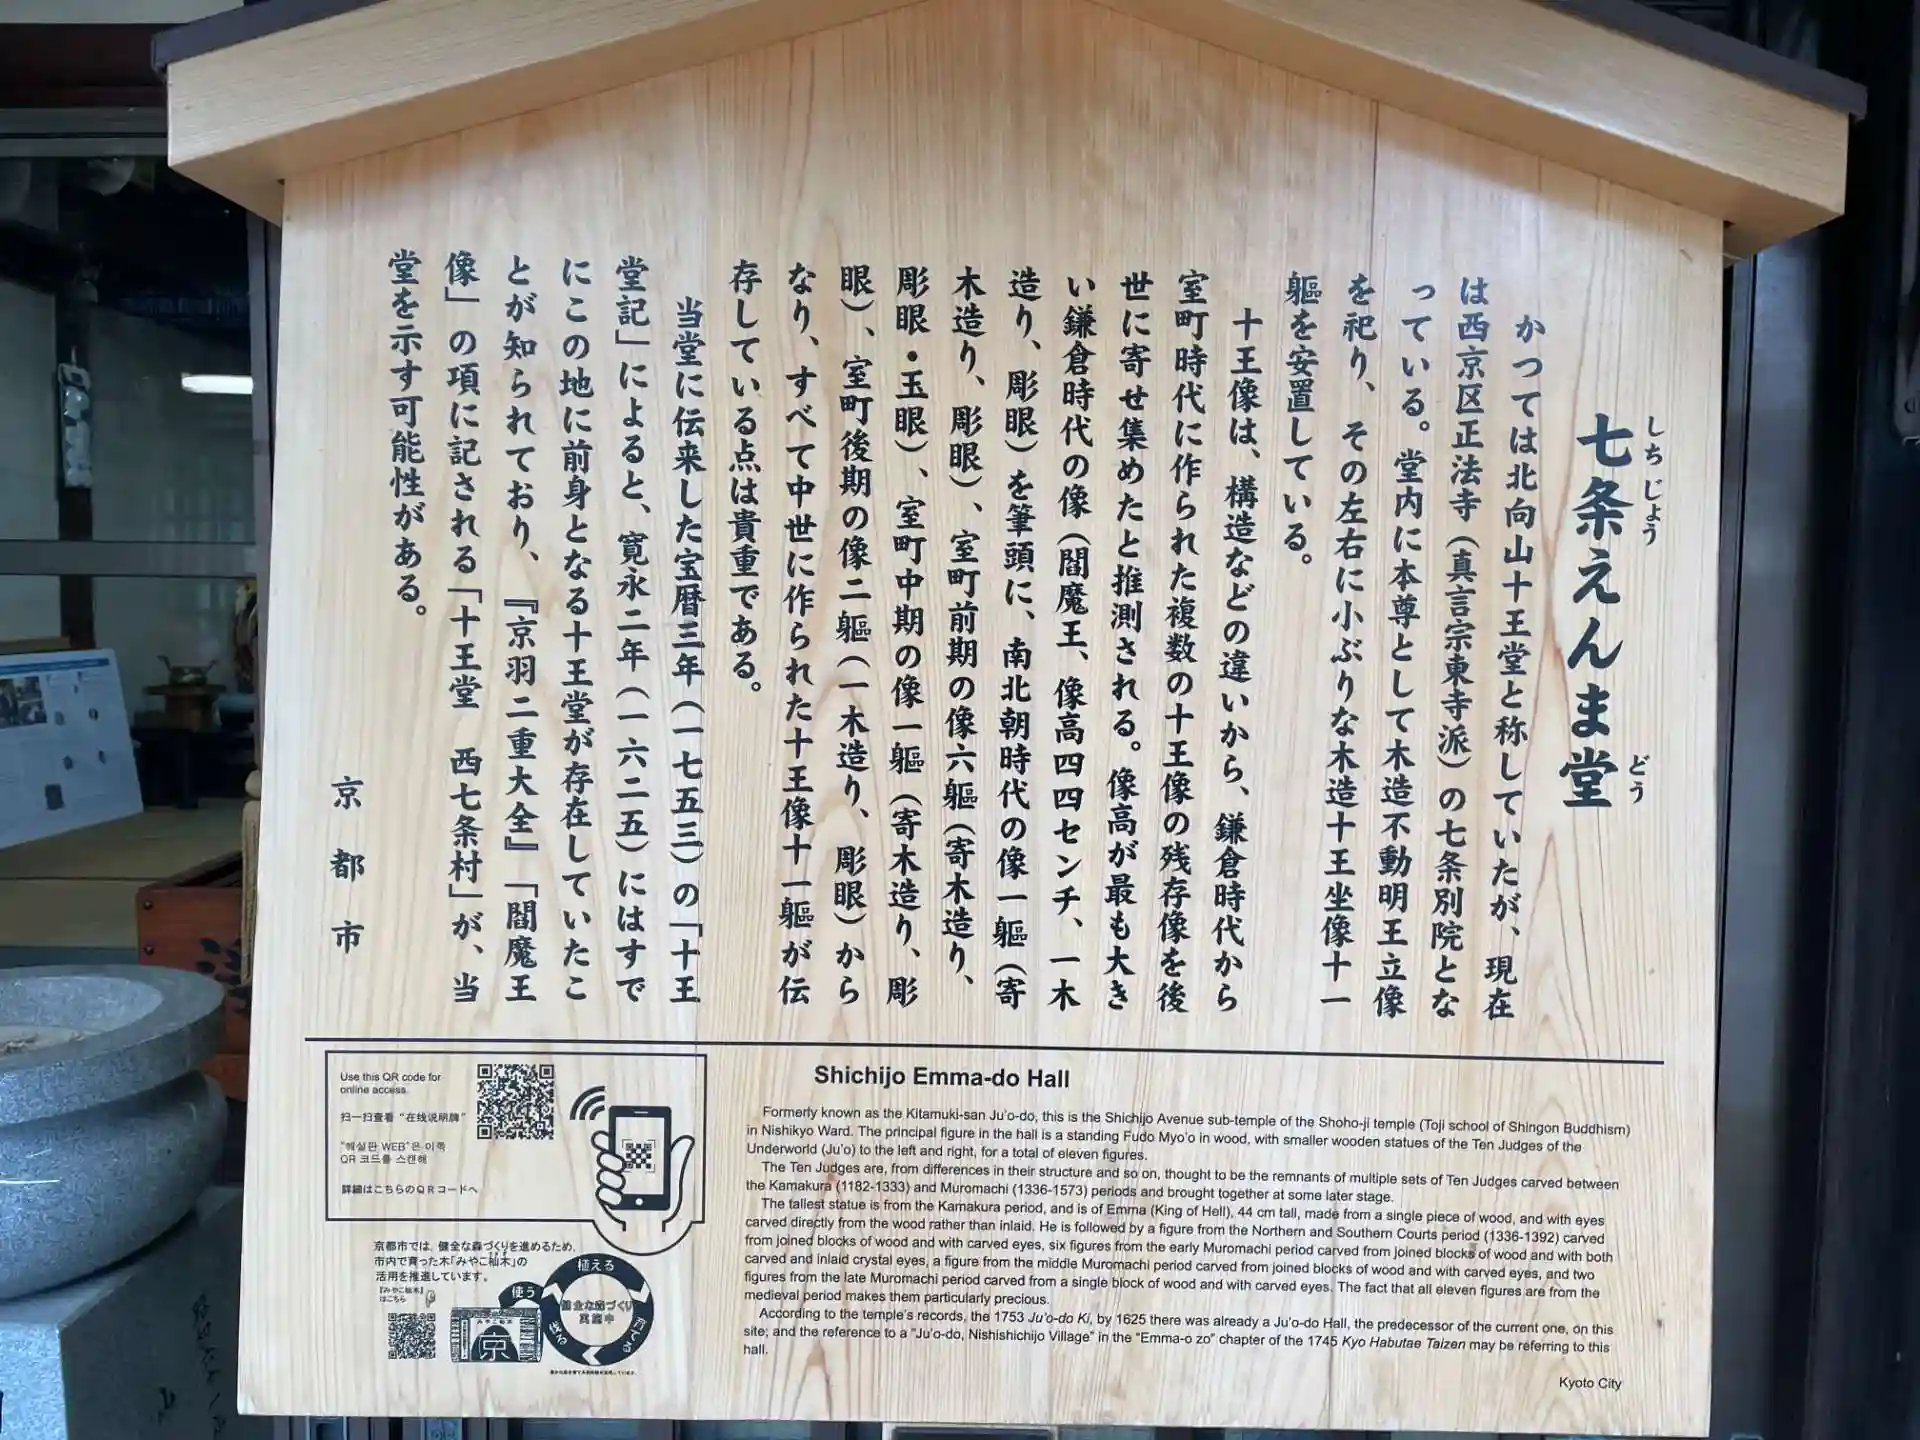 七条えんま堂
しちじょう
どう
かつては北向山十王堂と称していたが、現在
は西京区正法寺（真言宗東寺派）の七条別院とな
っている。堂内に本尊として木造不動明王立像
を祀り、その左右に小ぶりな木造十王坐像十一
軀を安置している。
十王像は、構造などの違いから、鎌倉時代から
室町時代に作られた複数の十王像の残存像を後
世に寄せ集めたと推測される。像高が最も大き
い鎌倉時代の像（閻魔王、像高四四センチ、一木
造り、彫眼）を筆頭に、南北朝時代の像一軀（寄
木造り、彫眼）、室町前期の像六軀（寄木造り、
彫眼・玉眼）、室町中期の像一軀（寄木造り、彫
眼）、室町後期の像二軀（一木造り、彫眼）から
なり、すべて中世に作られた十王像十一軀が伝
存している点は貴重である。
当堂に伝来した宝暦三年（一七五三）の「十王
堂記」によると、寛永二年（一六二五）にはすで
にこの地に前身となる十王堂が存在していたこ
とが知られており、『京羽二重大全』「閻魔王
像」の項に記される「十王堂　西七条村」が、当
堂を示す可能性がある。
京都市
Shichijo Emma-do Hall
Formerly known as the Kitamuki-san Ju'o-do, this is the Shichijo Avenue sub-temple of the Shoho-ji temple (Toji school of Shingon Buddhism)
in Nishikyo Ward. The principal figure in the hall is a standing Fudo Myo'o in wood, with smaller wooden statues of the Ten Judges of the
Underworld (Ju'o) to the left and right, for a total of eleven figures.
The Ten Judges are, from differences in their structure and so on, thought to be the remnants of multiple sets of Ten Judges carved between
the Kamakura (1182-1333) and Muromachi (1336-1573) periods and brought together at some later stage.
The tallest statue is from the Kamakura period, and is of Emma (King of Hell), 44 cm tall, made from a single piece of wood, and with eyes
carved directly from the wood rather than inlaid. He is followed by a figure from the Northern and Southern Courts period (1336-1392) carved
from joined blocks of wood and with carved eyes, six figures from the early Muromachi period carved from joined blocks of wood and with both
carved and inlaid crystal eyes, a figure from the middle Muromachi period carved from joined blocks of wood and with carved eyes, and two
figures from the late Muromachi period carved from a single block of wood and with carved eyes. The fact that all eleven figures are from the
medieval period makes them particularly precious.
According to the temple's records, the 1753 Ju'o-do Ki, by 1625 there was already a Ju'o-do Hall, the predecessor of the current one, on this
site; and the reference to a "Ju'o-do, Nishishichijo Village" in the "Emma-o zo" chapter of the 1745 Kyo Habutae Taizen may be referring to this
hall.
Kyoto City
Use this QR code for
online access.
扫一扫查看“在线说明牌”
"해설판 WEB"은 이쪽
QR 코드를 스캔해
詳細はこちらのQRコードへ
京都市では、健全な森づくりを進めるため、
市内で育った木「みやこ杣木」の
活用を推進しています。
「みやこ杣木」
はこちら
植える
使う
健全な森づくり
実施中
そだてる
みやこ杣木
京